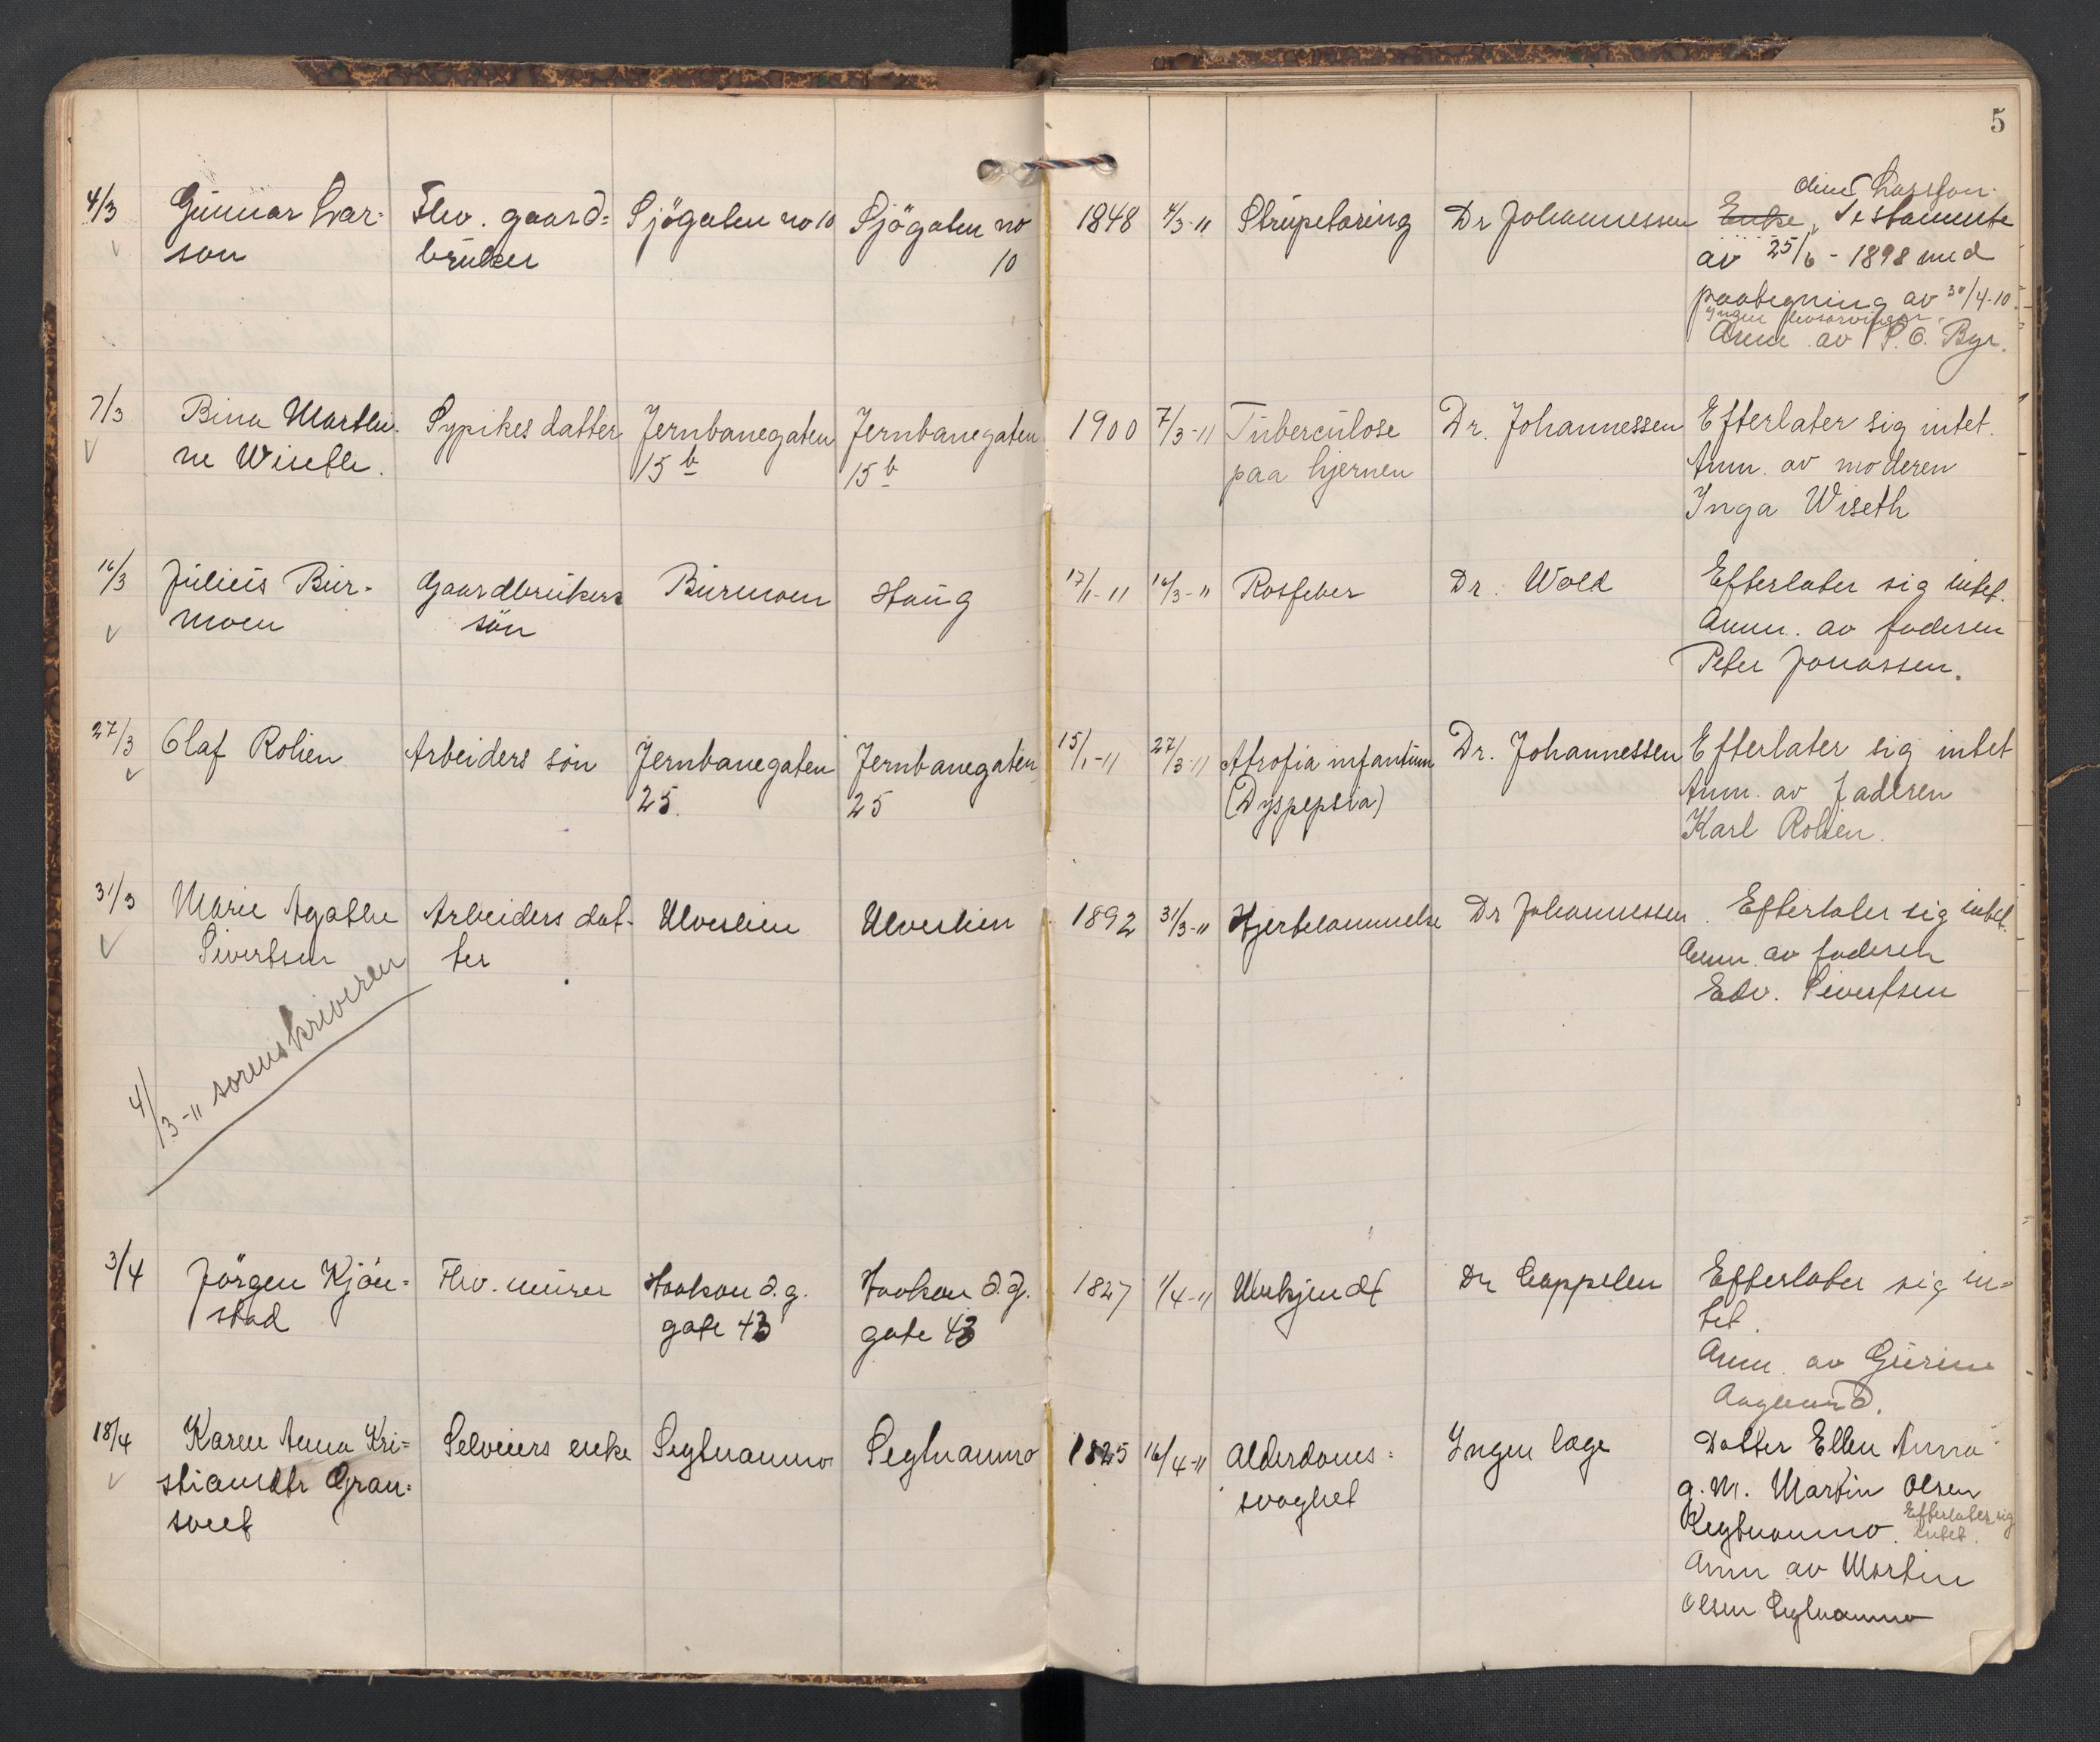 5
4/3 Gunnar Lar-
son
Fhv. gaard-
bruker
Sjögaten no 10
Sjögaten no
10
1848
4/3-11
Strupetæring
Dr Johannessen
Larsson
Enke, Testamente
av 25/6 - 1898 med
paategning av 30/4-10.
Ingen livsarvinger.
Anm. av P. O. Byr.
7/3 Bina Marthi-
ne Wiseth.
Sypikes datter
Jernbanegaten
15 b
Jernbanegaten
15 b
1900
7/3-11
Tuberculose
paa hjernen
Dr. Johannessen
Efterlater sig intet.
Anm. av moderen
Inga Wiseth
16/3 Julius Bur-
moen
Gaardbrukers
sön
Burmoen
Haug
17/1-11
16/3-11
Rosfeber
Dr. Wold
Efterlater sig intet.
Anm. av faderen
Peter Jonassen.
27/3 Olaf Rolien
Arbeiders sön
Jernbanegaten
25.
Jernbanegaten
25
15/1-11
27/3-11
Atrofia infantum
(Dyspepsia)
Dr. Johannessen
Efterlater sig intet
Anm. av faderen
Karl Rolien.
31/3 Marie Agathe
Sivertsen
Arbeiders dat-
ter
Ulveslien
Ulveslien
1892
31/3-11
Hjertelammelse
Dr Johannessen
Efterlater sig intet.
Anm. av faderen
Edv. Sivertsen
4/3-11 sorenskriveren
3/4 Jörgen Kjön-
stad
Fhv. murer
Haakon d. g.
gate 43
Haakon d. g.
gate 43
1827
1/4-11
Ukjendt
Dr Cappelen
Efterlater sig in-
tet.
Anm. av Gurine
Aaglund.
18/4 Karen Anna Kri-
stiansdtr Gran-
soet
Selveiers enke
Segtnanmo
Segtnanmo
1825
16/4-11
Alderdoms-
svaghet
Ingen læge
Datter Ellen Anna
g. m. Martin Olsen
Segtnanmo. Efterlater sig
intet.
Anm av Martin
Olsen Segtnanmo